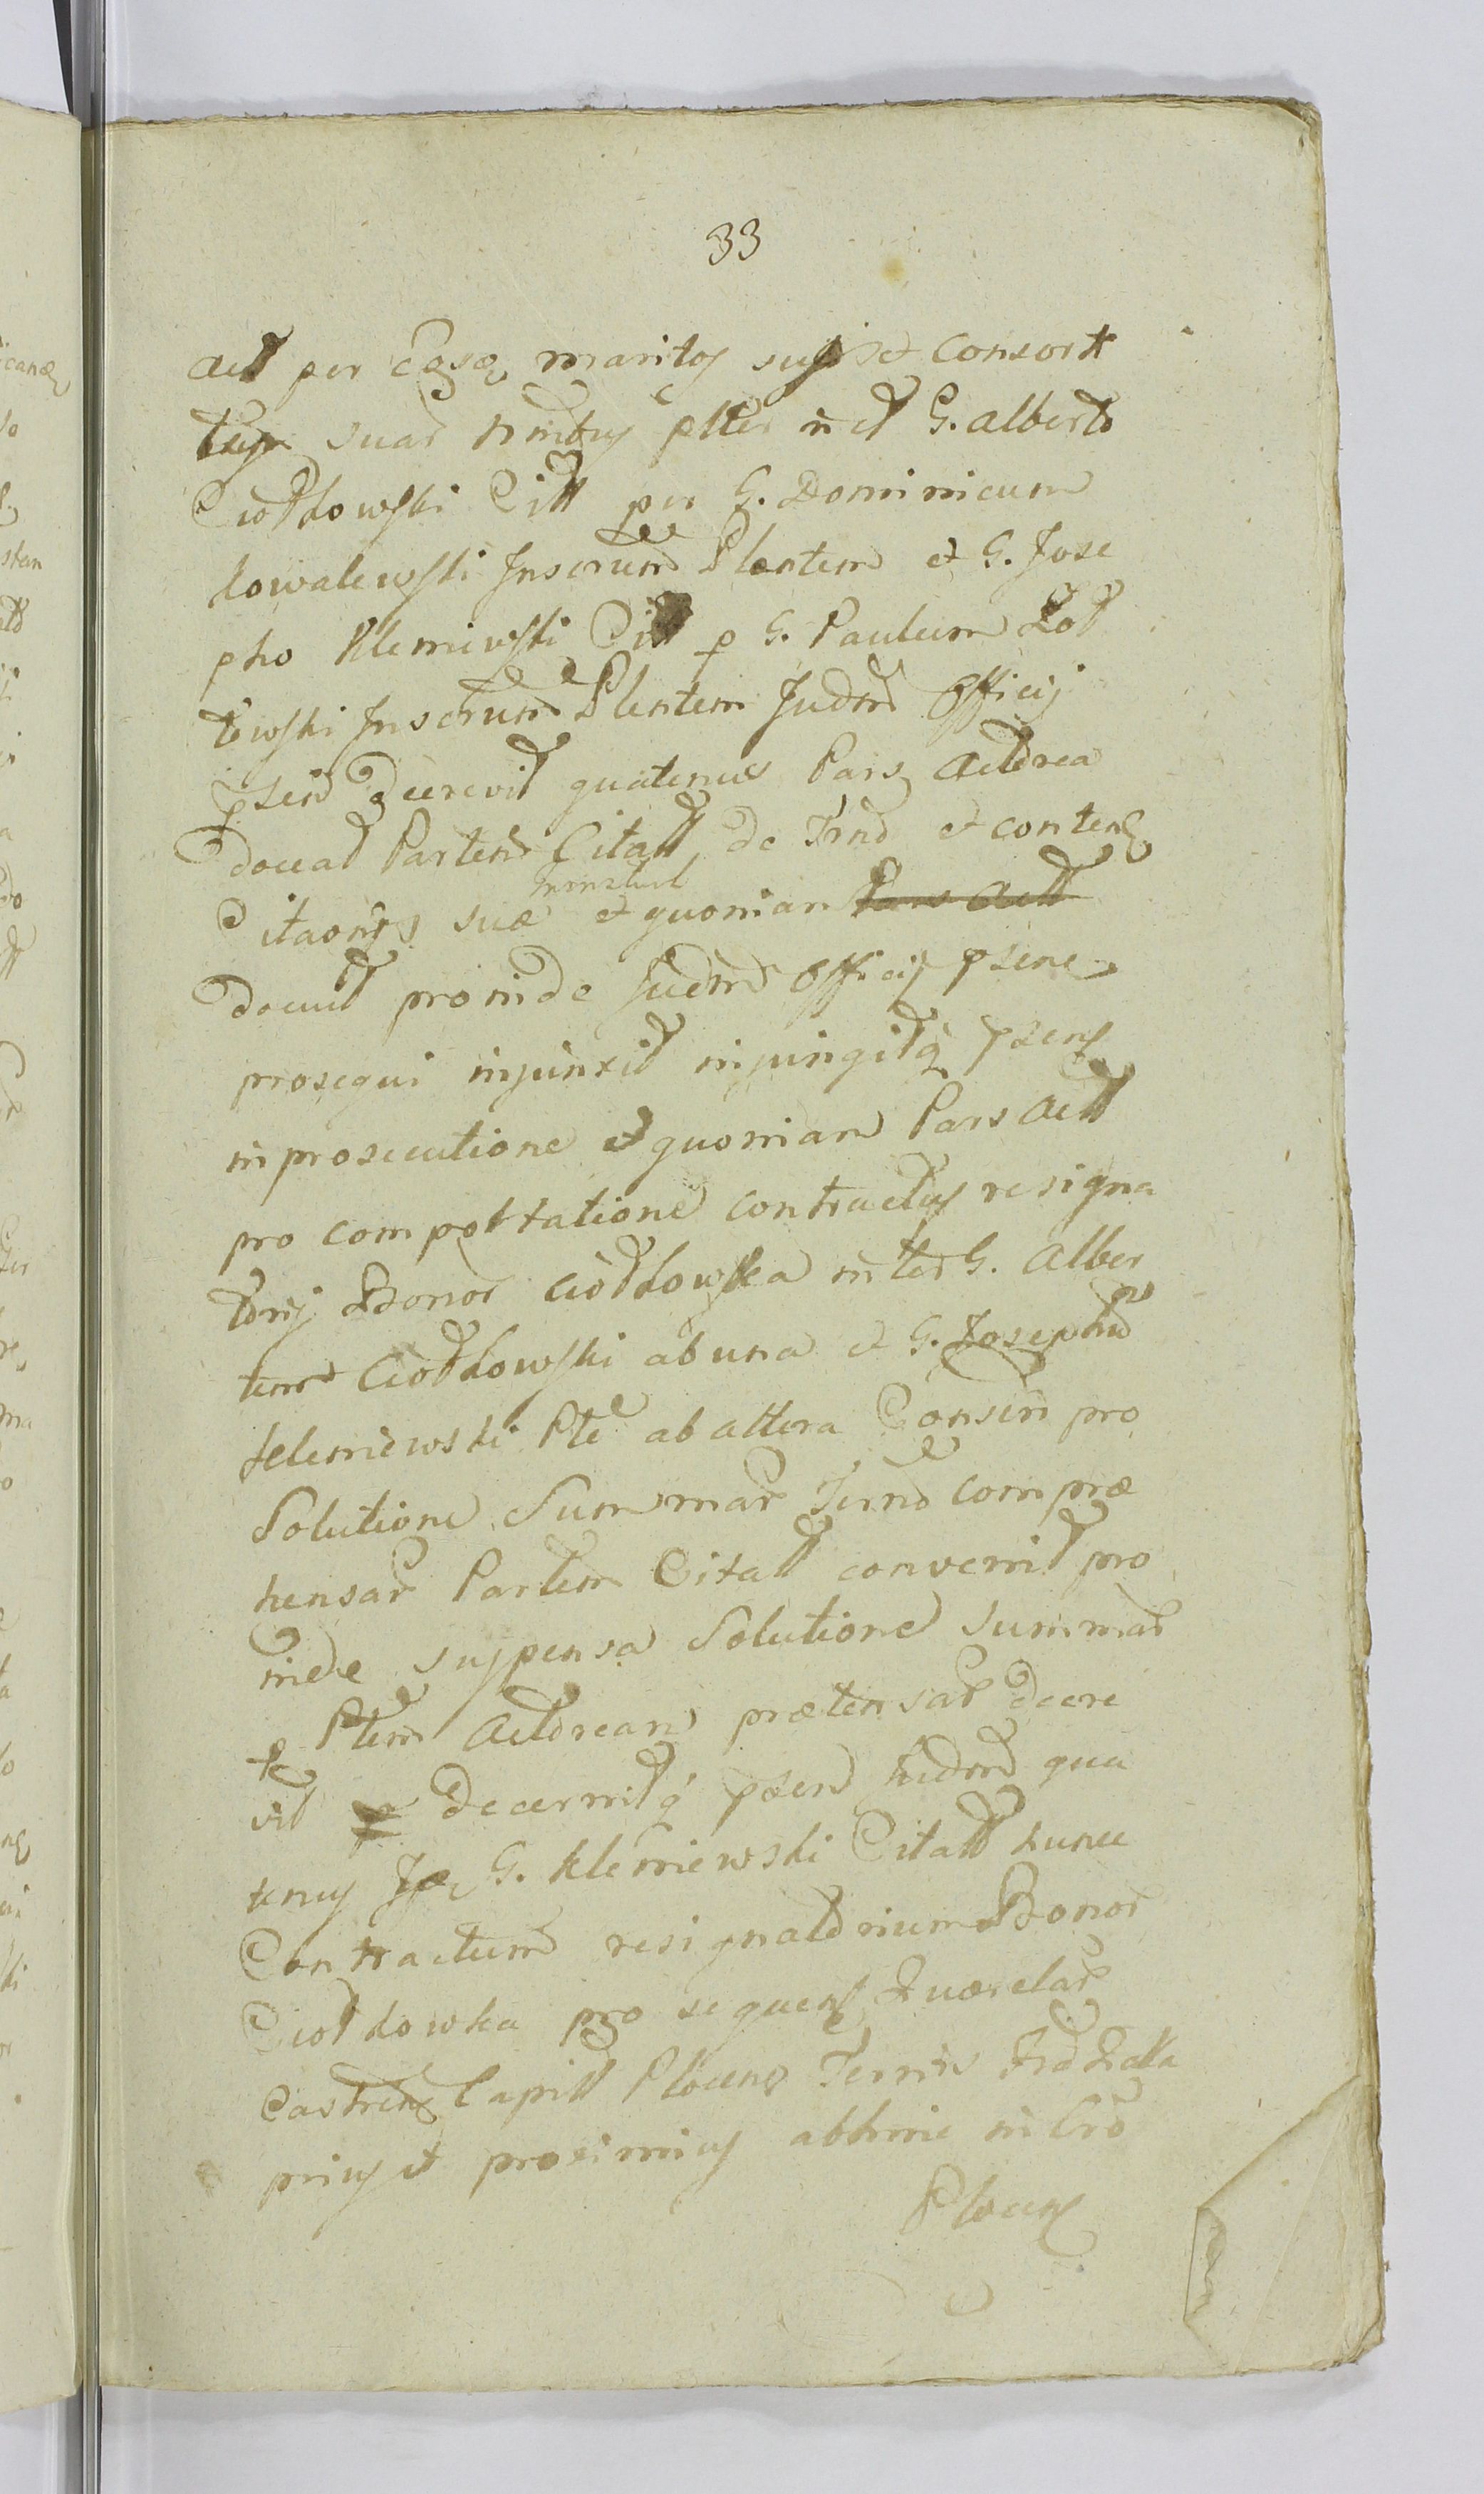 33
Actt per Eosq maritos suos et Consort
tum suar nmbus ptter n et G. Alberto
Ciołkowski Citt per G. Dominicum
Kowalewski Inscrum Plentem et G. Jose
pho Kleniewski Citt p G. Paulum Zoł
towski Inscrum Plentem Judm Officij
psen decrevit quatenus Pars Actorea
doceat Partem Citatt de Trno et content
Citaonis suæ et quoniam Pars Actt
docuit proinde Judm Officij psene
prosequi injunxit injungitq psens
in prosecutione et quoniam Pars Actt
pro comportatione contractus resigna
torij Bonor Ciołkowka inter G. Alber
tum Ciołkowski ab una et G. Josephu
Kleniewski Pte ab altera Consen pro
Solutione Summar Terno compræ
hensar Partem Citatt convenit pro
inde suspensa Solutione Summar
p Ptem Actoream prætensar decre
vit decernitq psen Judm qua
tenus G. Kleniewski Citatt hunce
Contractum resignatorium Bonor
Ciołkowka pro sequen Querelar
Castren Capitt Plocens Ternis
prius et proximius abhinc in Cro
Plocen